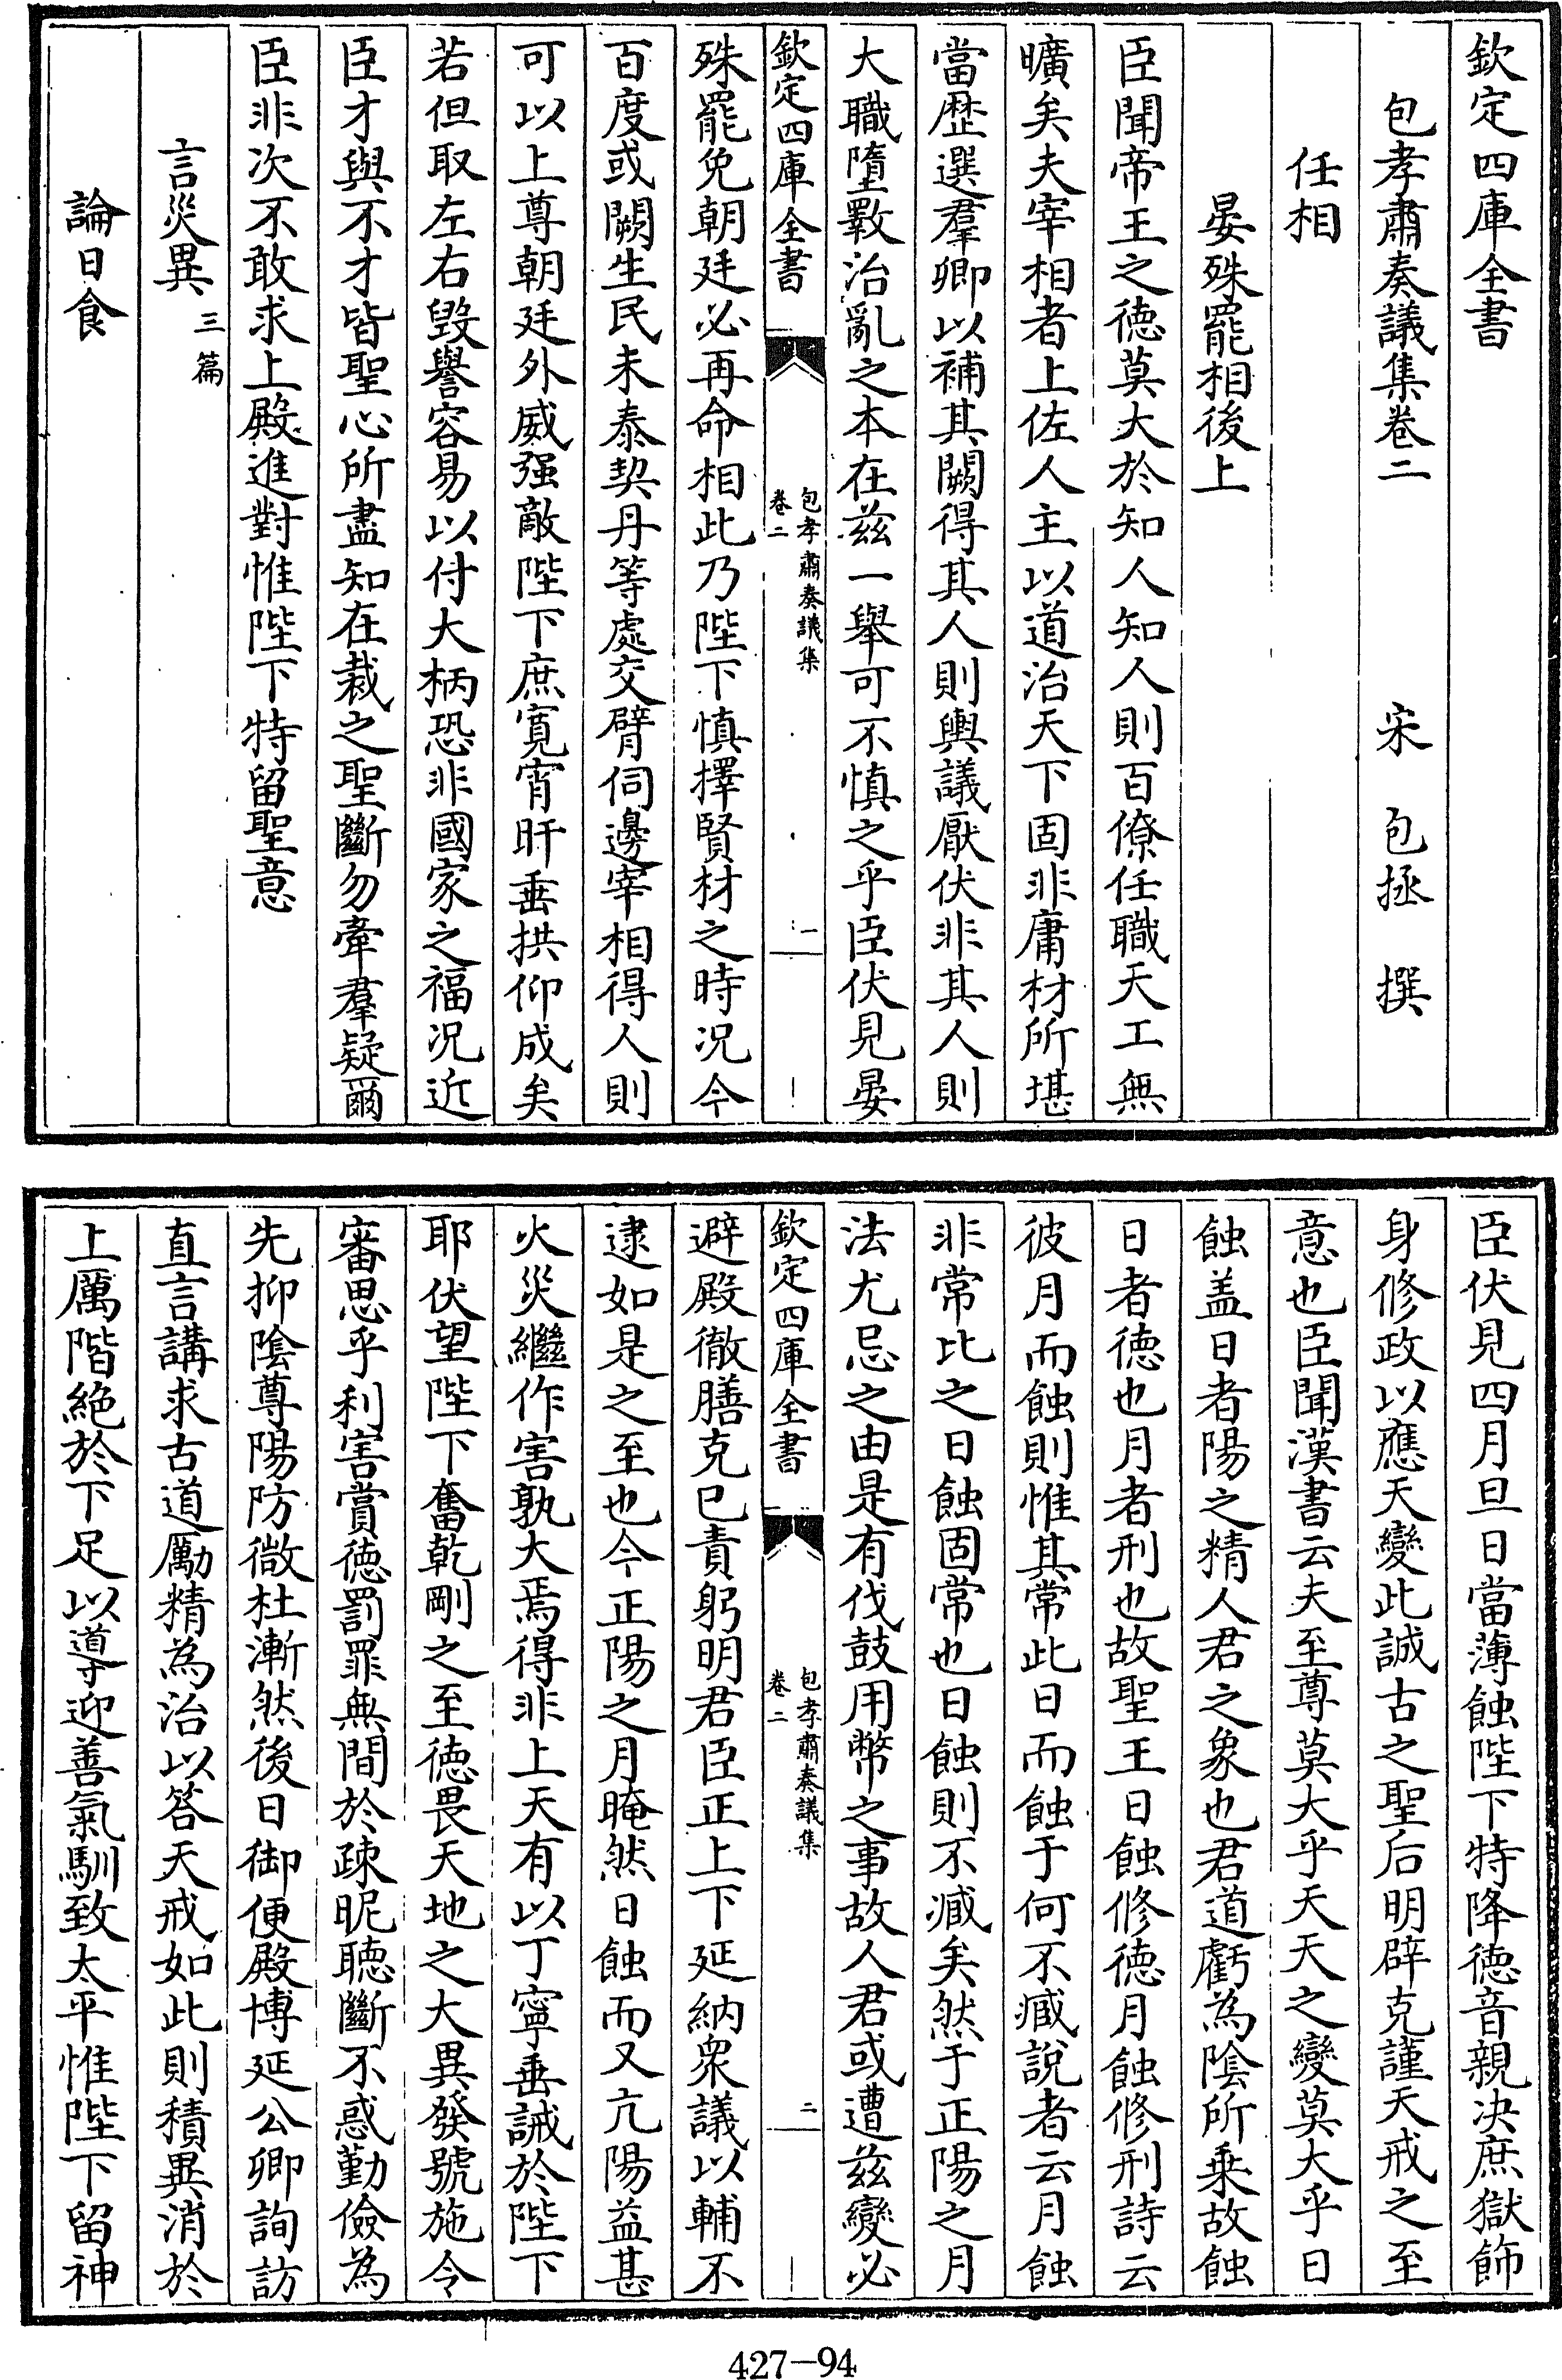 欽定四庫全書
包孝肅奏議集卷二　宋　包拯　撰
任相
晏殊罷相後上
臣聞帝王之徳莫大於知人知人則百僚任職天工無
曠矣夫宰相者上佐人主以道治天下固非庸材所堪
當歴選羣卿以補其闕得其人則輿議厭伏非其人則
大職墮斁治亂之本在兹一舉可不慎之乎臣伏見晏
欽定四庫全書
包孝肅奏議集
卷二
一
殊罷免朝廷必再命相此乃陛下慎擇賢材之時况今
百度或闕生民未泰契丹等處交臂伺邊宰相得人則
可以上尊朝廷外威强敵陛下庶寛宵旰垂拱仰成矣
若但取左右毁譽容易以付大柄恐非國家之福况近
臣才與不才皆聖心所盡知在裁之聖斷勿牽羣疑爾
臣非次不敢求上殿進對惟陛下特留聖意
言災異三篇
論日食
臣伏見四月旦日當薄蝕陛下特降徳音親决庶獄飾
身修政以應天變此誠古之聖后明辟克謹天戒之至
意也臣聞漢書云夫至尊莫大乎天天之變莫大乎日
蝕盖日者陽之精人君之象也君道虧為陰所乗故蝕
日者徳也月者刑也故聖王日蝕修徳月蝕修刑詩云
彼月而蝕則惟其常此日而蝕于何不臧說者云月蝕
非常比之日蝕固常也日蝕則不臧矣然于正陽之月
法尤忌之由是有伐鼓用幣之事故人君或遭兹變必
欽定四庫全書
包孝肅奏議集
卷二
二
避殿徹膳克已責躬明君臣正上下延納衆議以輔不
逮如是之至也今正陽之月晻然日蝕而又亢陽益甚
火災繼作害孰大焉得非上天有以丁寧垂誡於陛下
耶伏望陛下奮乾剛之至徳畏天地之大異發號施令
審思乎利害賞徳罰罪無間於疎昵聽斷不惑勤儉為
先抑陰尊陽防微杜漸然後日御便殿博延公卿詢訪
直言講求古道勵精為治以答天戒如此則積異消於
上厲階絶於下足以導迎善氣馴致太平惟陛下留神
427-94